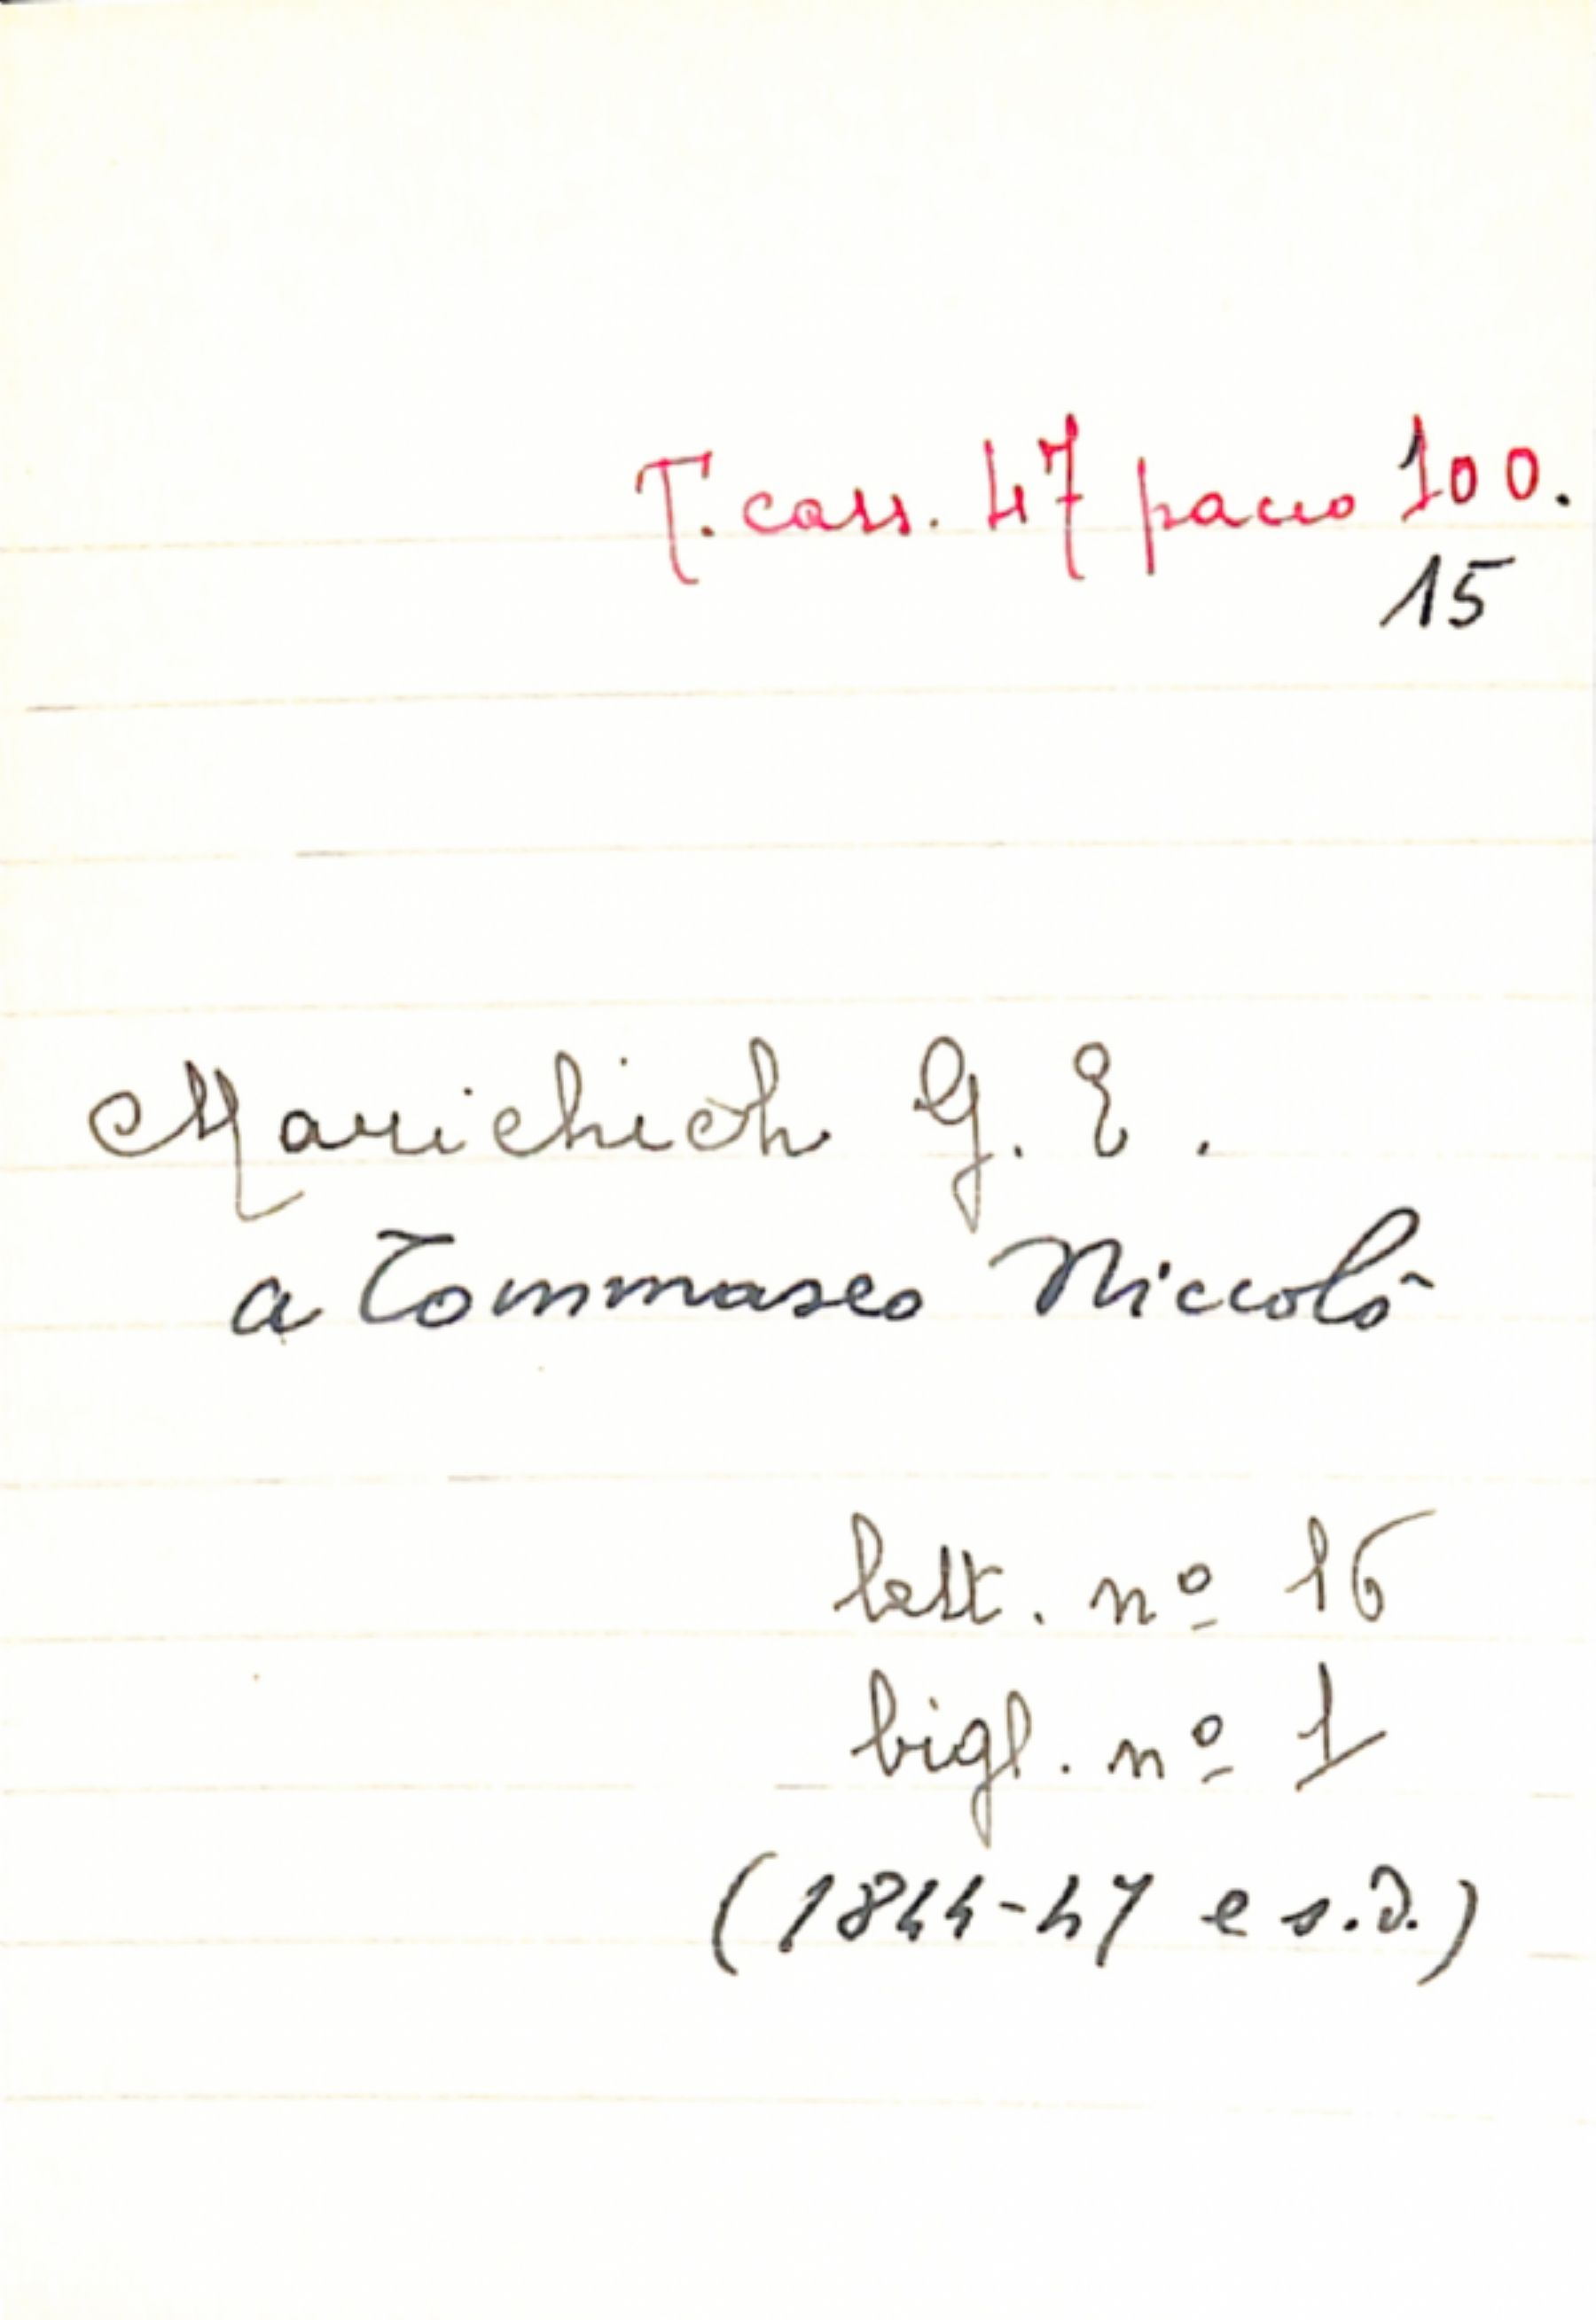 T. cass. 47 pacco 100.
15
Marichich G. E.
a Tommaseo Niccolò
lett. nº 16
bigl. nº 1
(1844-47 e s.d.)